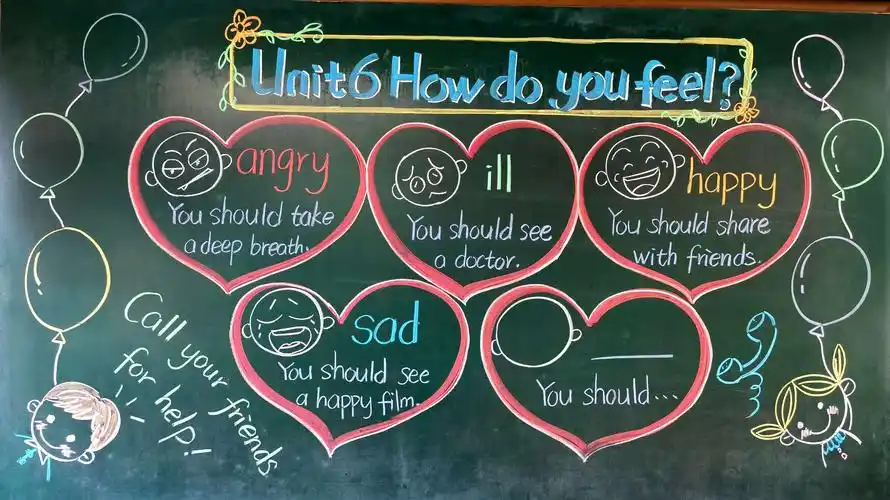 Unit6 How do you feel?
angry
You should take
a deep breath.
ill
You should see
a doctor.
happy
You should share
with friends.
sad
You should see
a happy film.
You should...
Call your friends
for help!